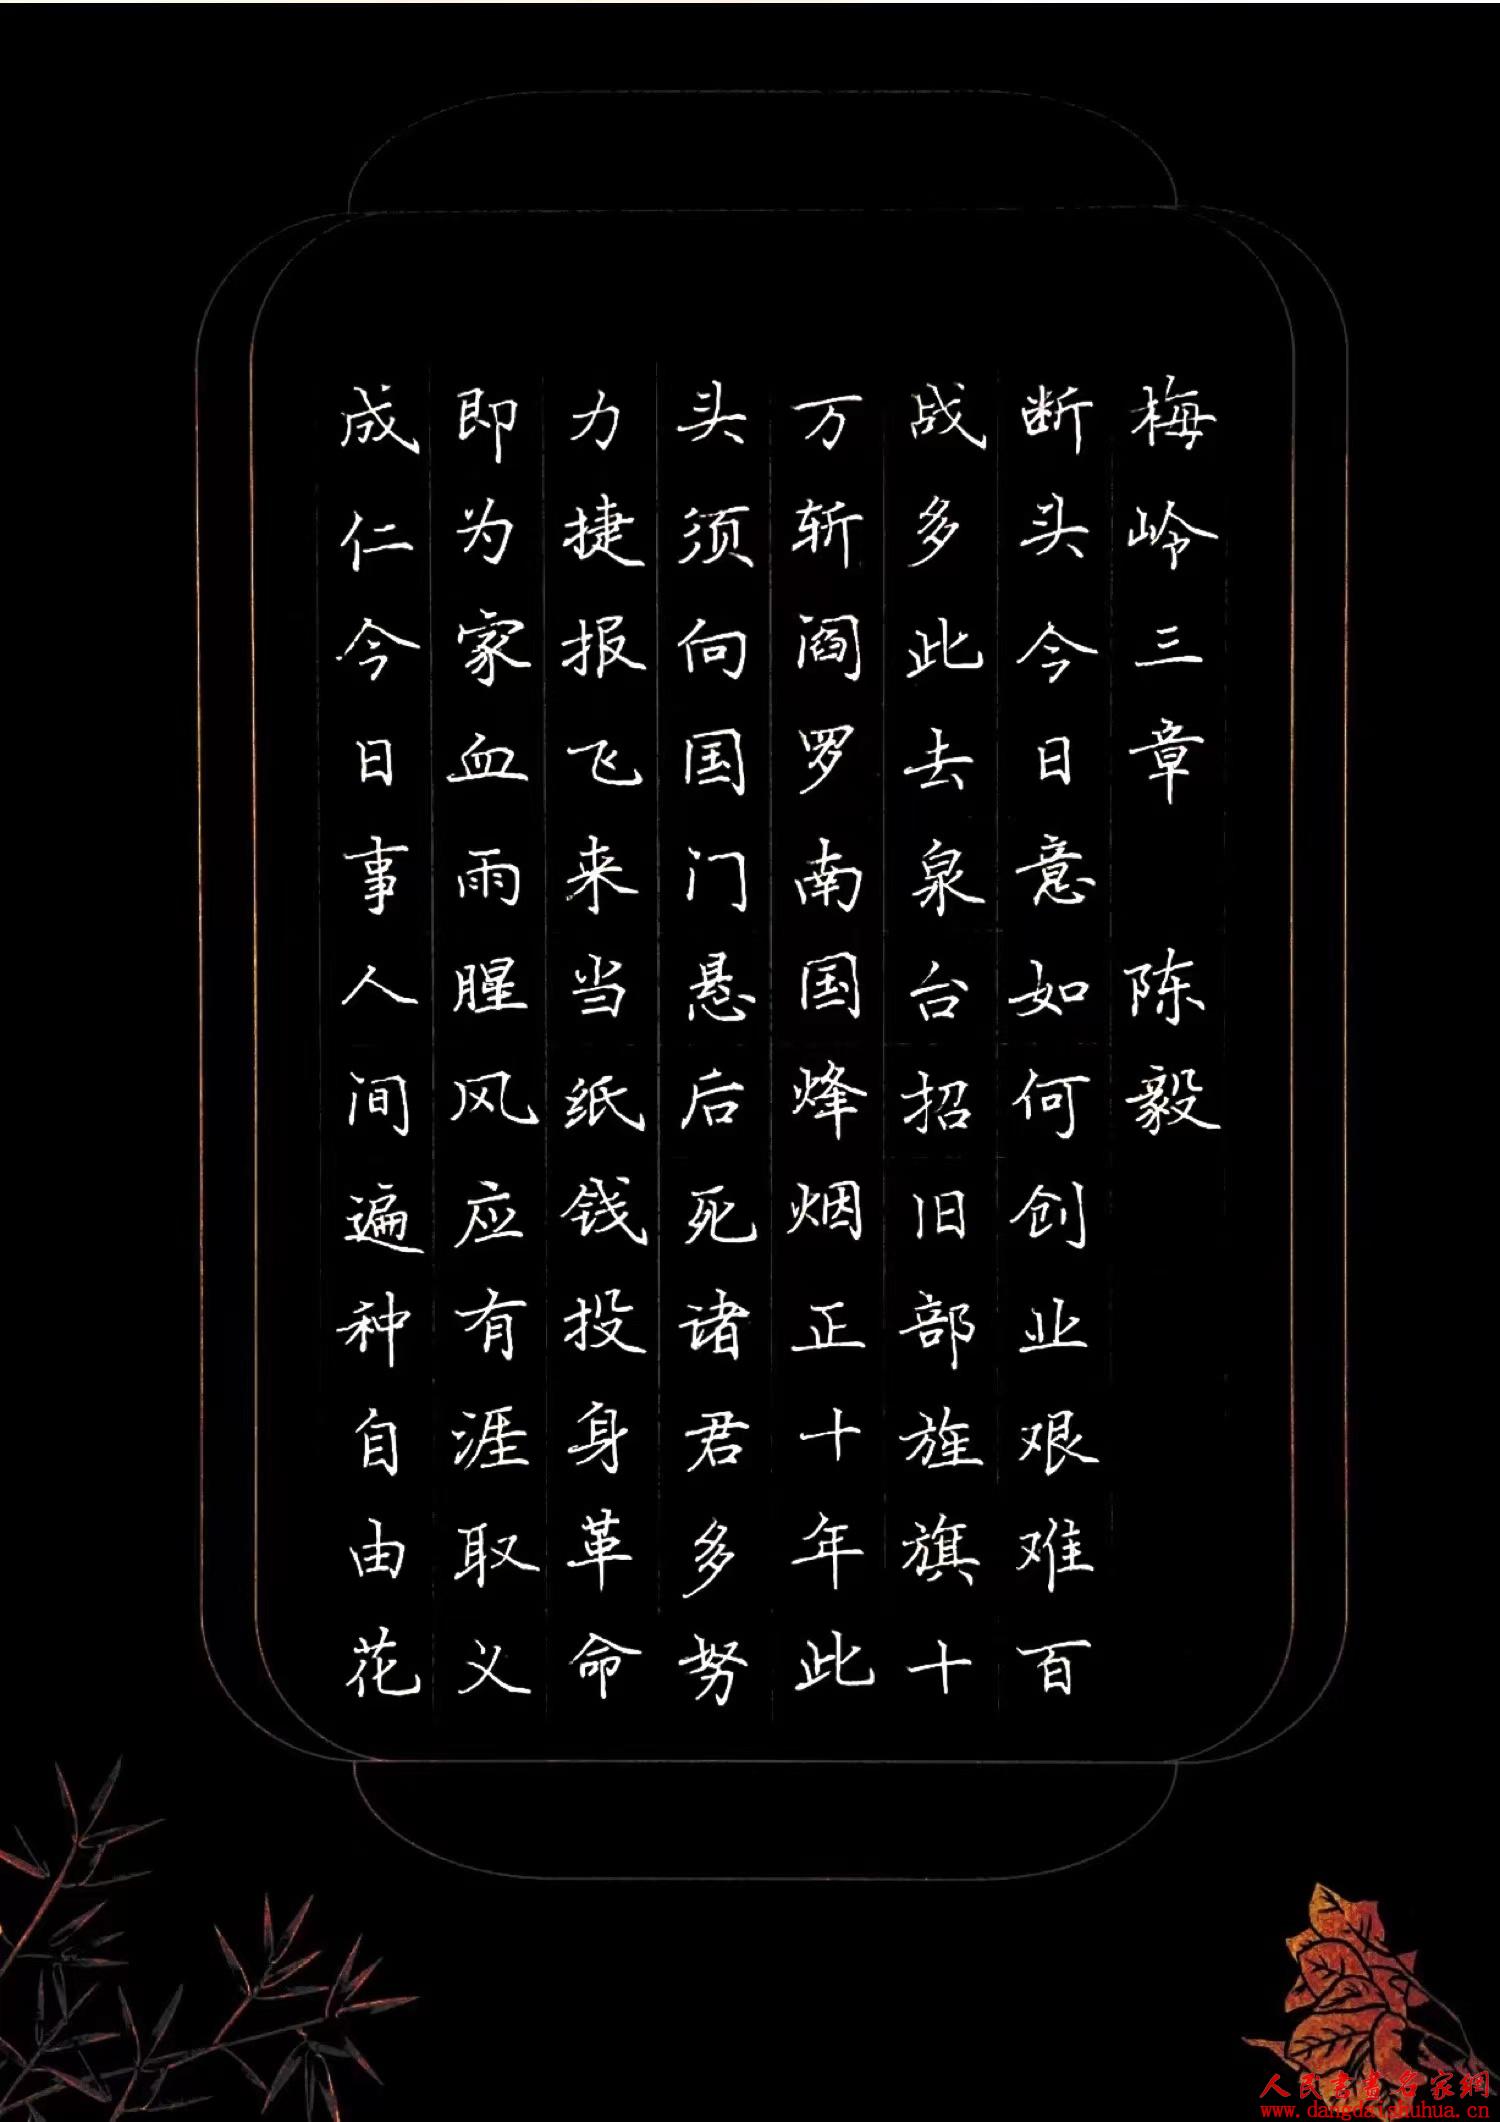 梅岭三章 陈毅
断头今日意如何创业艰难百
战多此去泉台招旧部旌旗十
万斩阎罗南国烽烟正十年此
头须向国门悬后死诸君多努
力捷报飞来当纸钱投身革命
即为家血雨腥风应有涯取义
成仁今日事人间遍种自由花
人民书画名家網
www.dangdaishuhua.cn